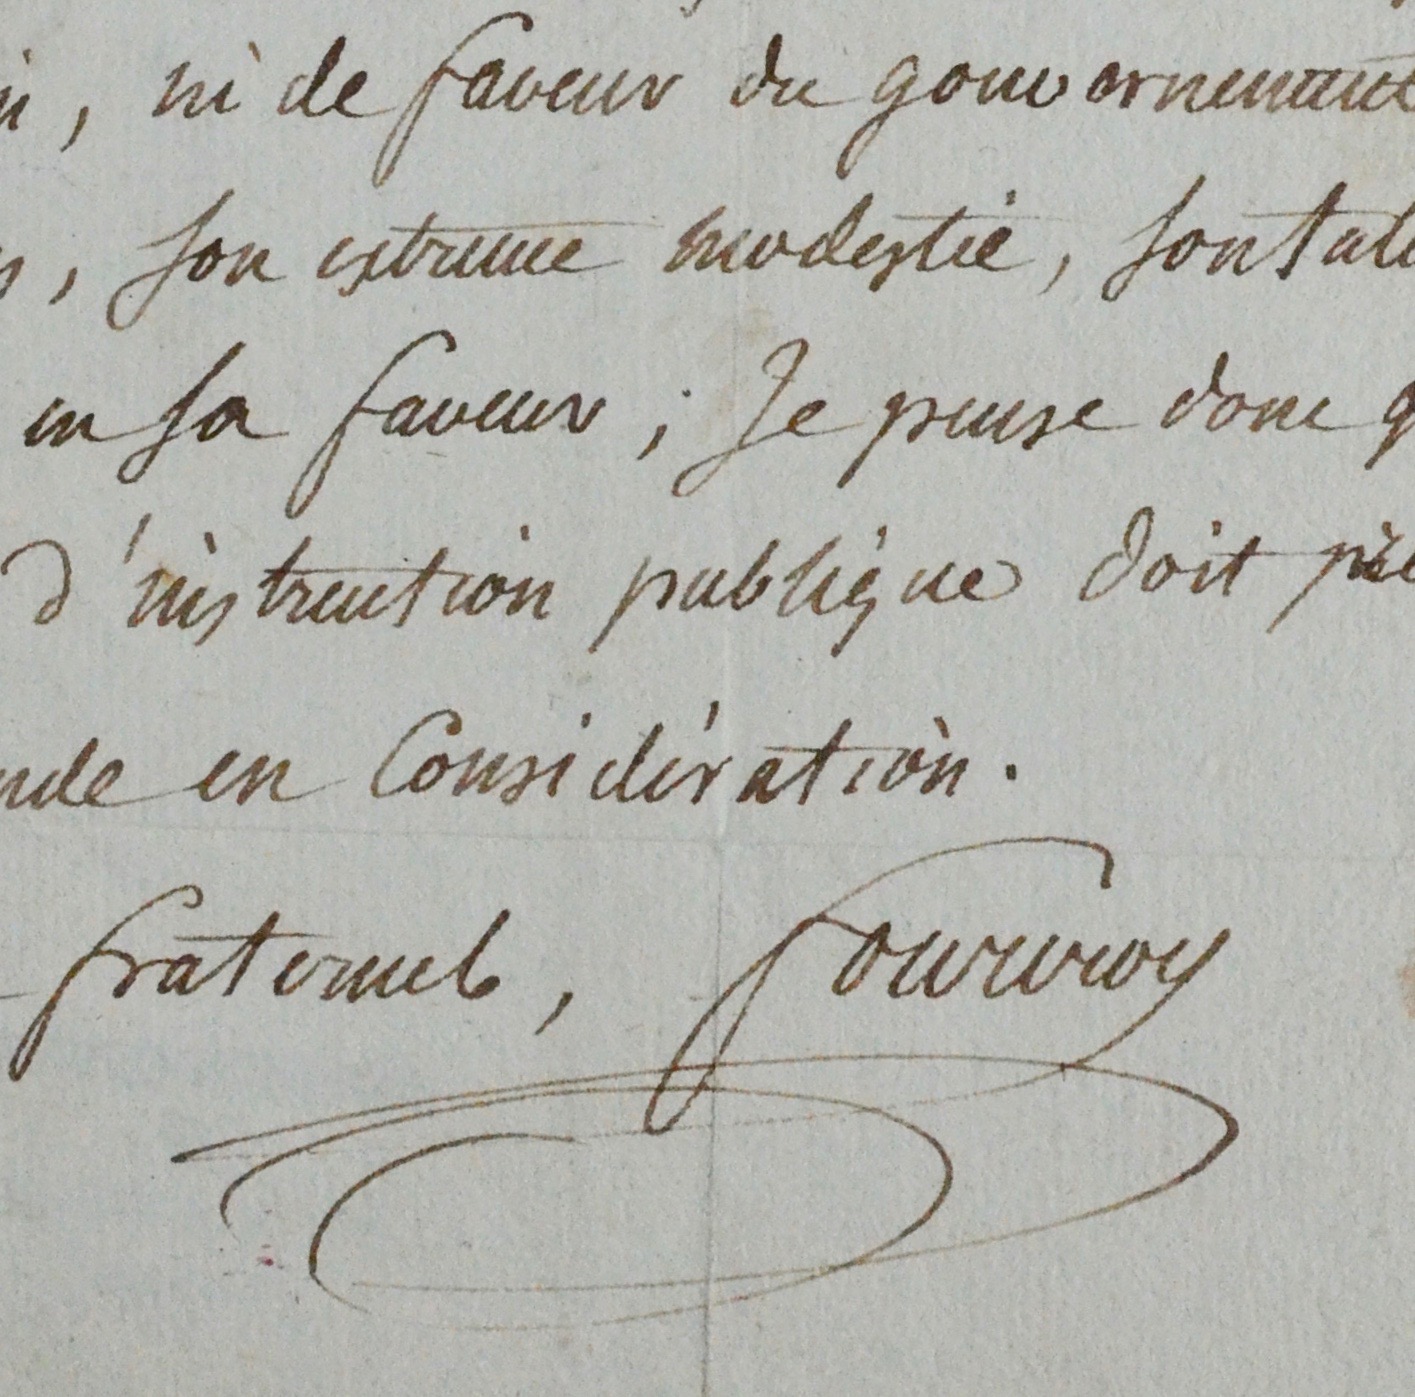 , ni de faveur du gouvernement
, son extreme modestie, son tale
en sa faveur ; Je pense donc q
d'instruction publique doit pre
nde en Considération.
fraternel,  fourcroy